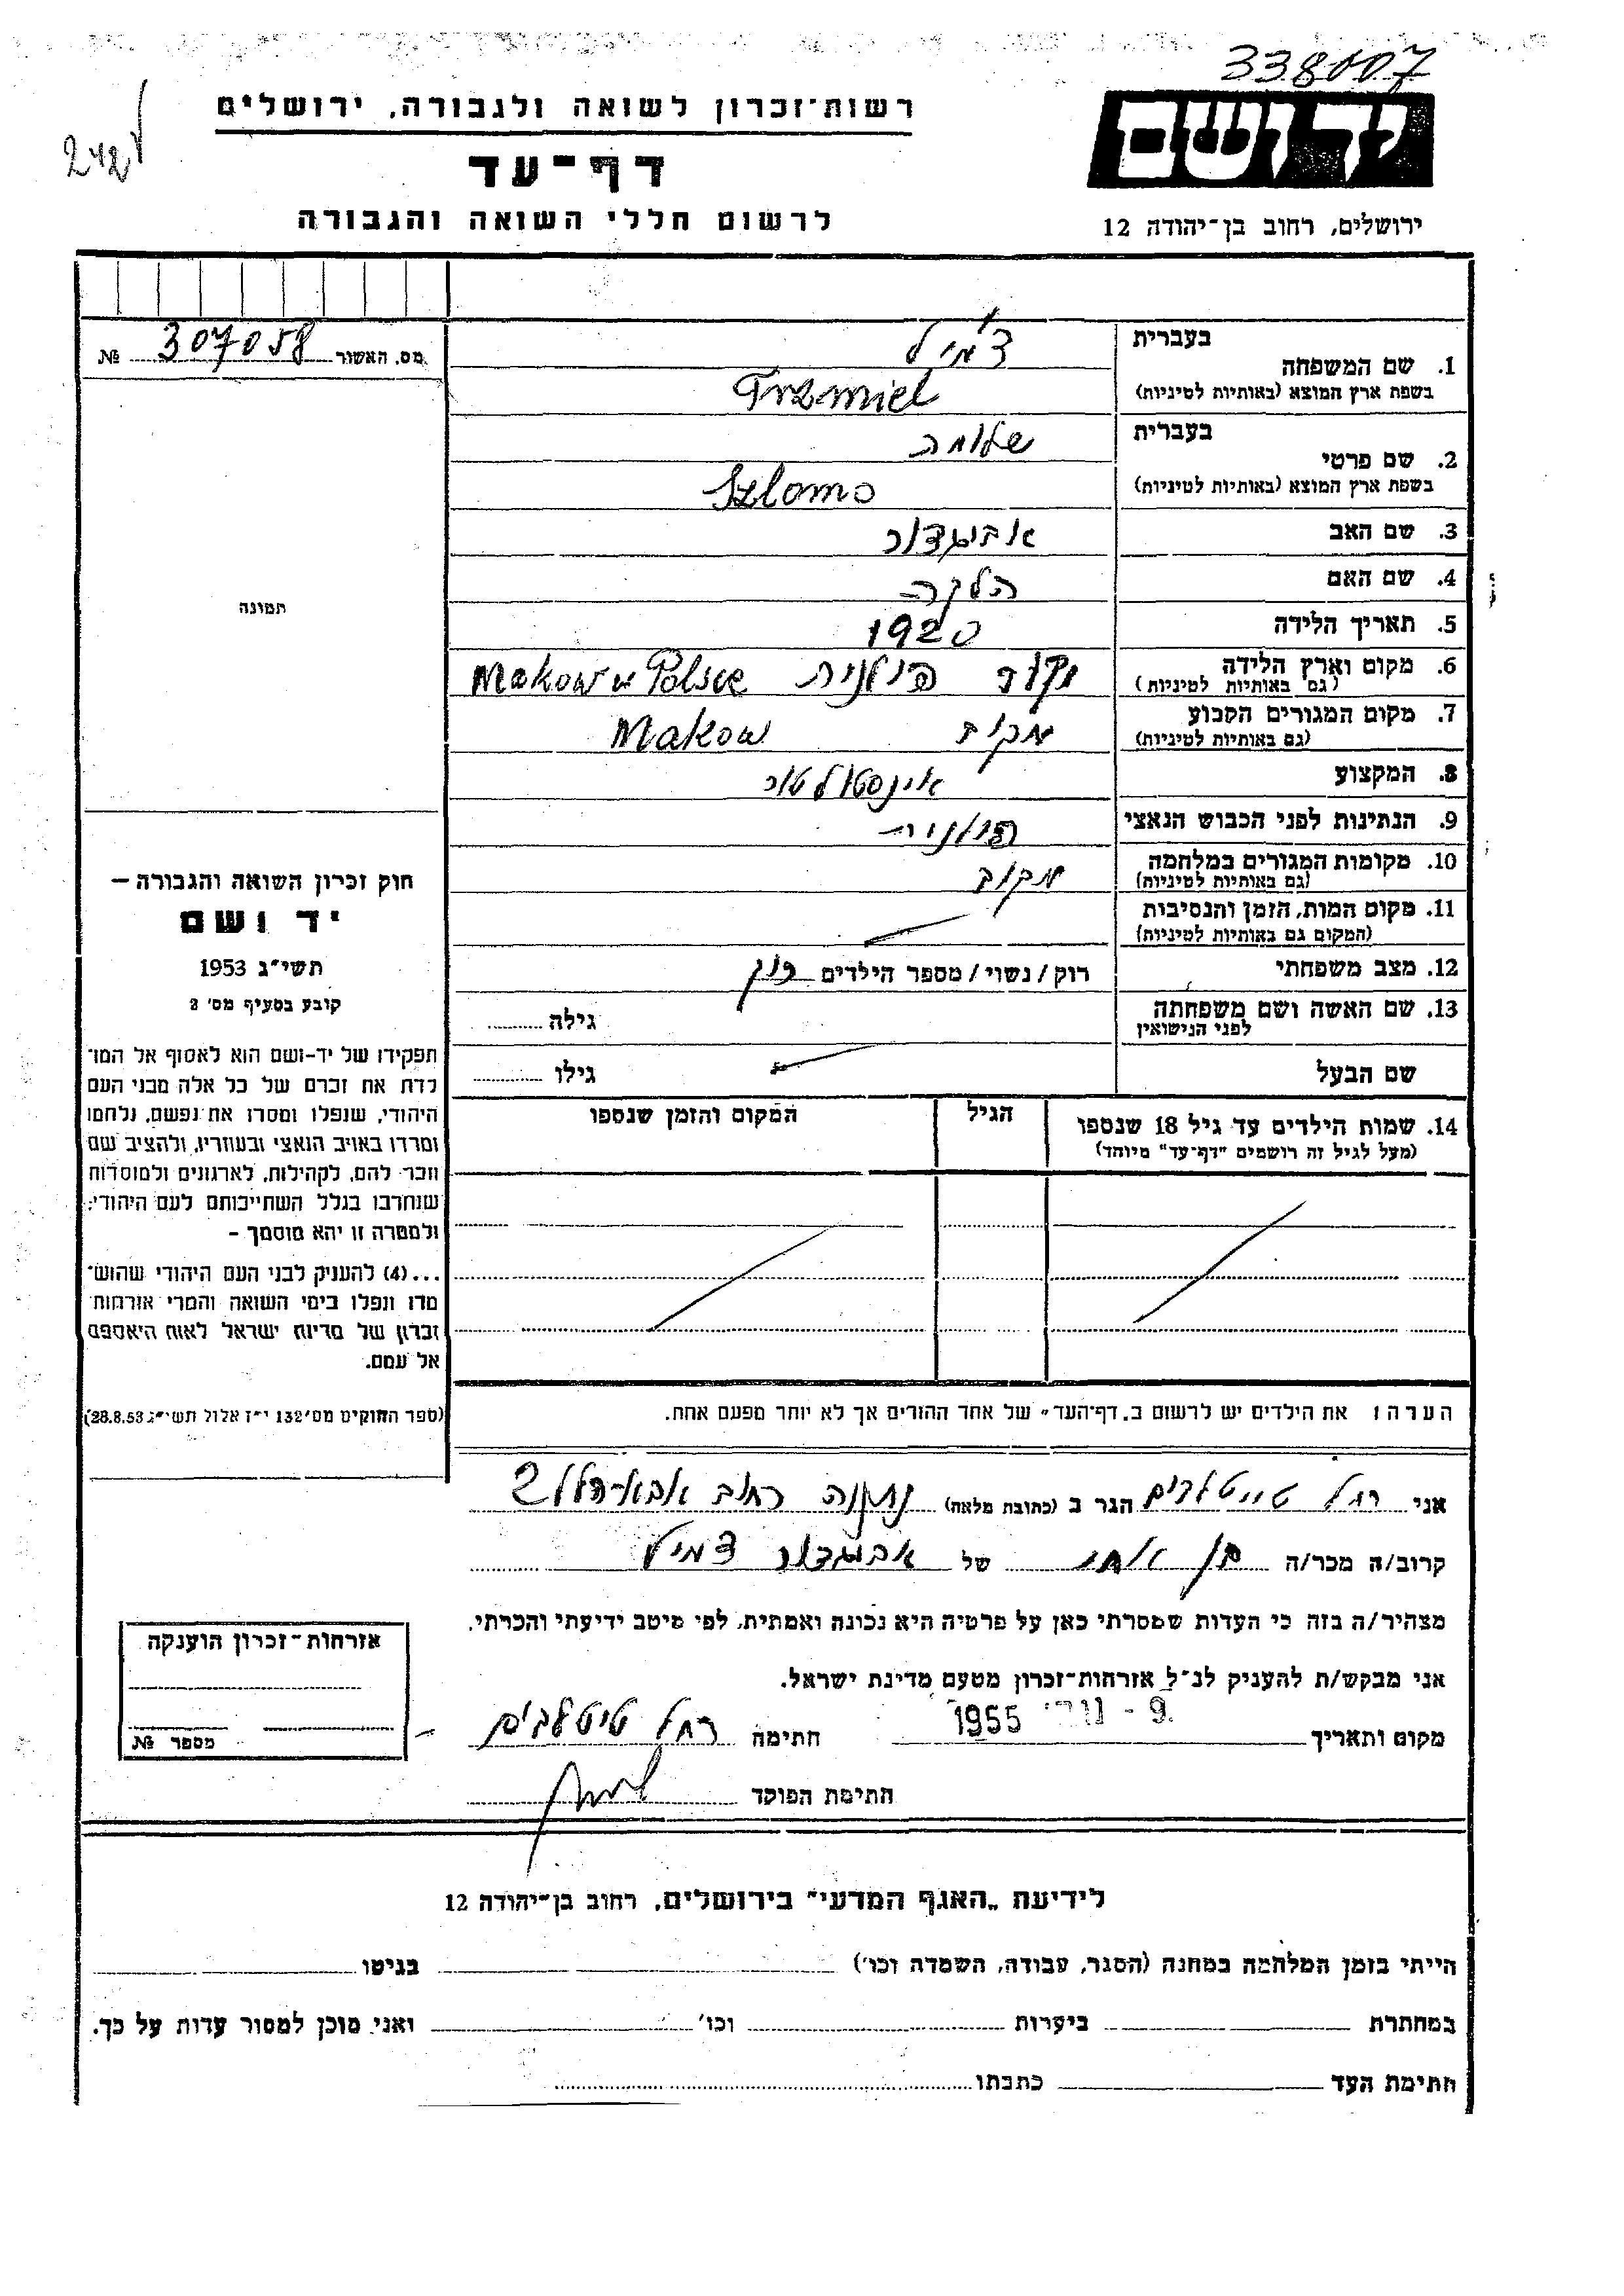 338007
רשות־זכרון לשואה ולגבורה, ירושלים
דף־עד
לרשום חללי השואה והגבורה
יד ושם
ירושלים, רחוב בן־יהודה 12
מס. האשור 307058 №
תמונה
חוק זכרון השואה והגבורה –
יד ושם
תשי״ג 1953
קובע בסעיף מס׳ 2
תפקידו של יד-ושם הוא לאסוף אל המו־
לדת את זכרם של כל אלה מבני העם
היהודי, שנפלו ומסרו את נפשם, נלחמו
ומרדו באויב הנאצי ובעוזריו, ולהציב שם
וזכר להם, לקהילות, לארגונים ולמוסדות
שנחרבו בגלל השתייכותם לעם היהודי;
ולמטרה זו יהא מוסמך –
...(4) להעניק לבני העם היהודי שהוש־
מדו ונפלו בימי השואה והמרי אזרחות
זכרון של מדינת ישראל לאות היאספם
אל עמם.
(ספר החוקים מס׳ 132 י״ז אלול תשי״ג 28.8.53)
בעברית צ׳מיל
1. שם המשפחה
בשפת ארץ המוצא (באותיות לטיניות) Trzmiel
בעברית שלומה
2. שם פרטי
בשפת ארץ המוצא (באותיות לטיניות) Szlomo
3. שם האב אביגדור
4. שם האם
5. תאריך הלידה 1920
6. מקום וארץ הלידה פולנית Makow w Polsce
(גם באותיות לטיניות)
7. מקום המגורים הקבוע מקוב Makow
(גם באותיות לטיניות)
8. המקצוע אינסטלטור
9. הנתינות לפני הכבוש הנאצי פולנית
10. מקומות המגורים במלחמה מקוב
(גם באותיות לטיניות)
11. מקום המות, הזמן והנסיבות
(המקום גם באותיות לטיניות)
12. מצב משפחתי רוק / נשוי / מספר הילדים רוק
13. שם האשה ושם משפחתה גילה
לפני הנישואין
שם הבעל גילו
14. שמות הילדים עד גיל 18 שנספו הגיל המקום והזמן שנספו
(מעל לגיל זה רושמים "דף־עד" מיוחד)
הערה: את הילדים יש לרשום ב„דף־העד״ של אחד ההורים אך לא יותר מפעם אחת.
אני רחל טייטלבוים הגר ב (כתובת מלאה) נתניה רחוב אבא הלל 2
קרוב/ה מכר/ה בן אחי של אביגדור צמיל
מצהיר/ה בזה כי העדות שמסרתי כאן על פרטיה היא נכונה ואמתית, לפי מיטב ידיעתי והכרתי.
אני מבקש/ת להעניק לנ״ל אזרחות־זכרון מטעם מדינת ישראל.
מקום ותאריך 9 - 1955 חתימה רחל טיטלבוים
חתימת הפוקד
אזרחות־זכרון הוענקה
מספר №
לידיעת „האגף המדעי״ בירושלים, רחוב בן־יהודה 12
הייתי בזמן המלחמה במחנה (הסגר, עבודה, השמדה וכו׳) בגיטו
במחתרת ביערות וכו׳ ואני מוכן למסור עדות על כך.
חתימת העד כתבתו